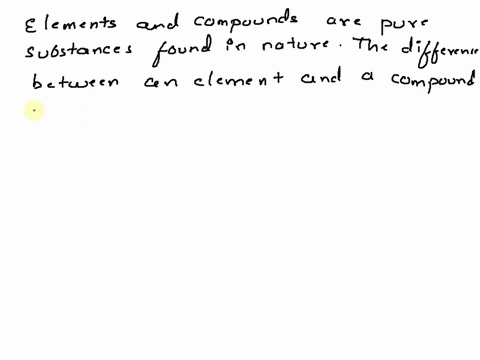 Elements and compounds are pure
substances found in nature. The difference
between an element and a compound